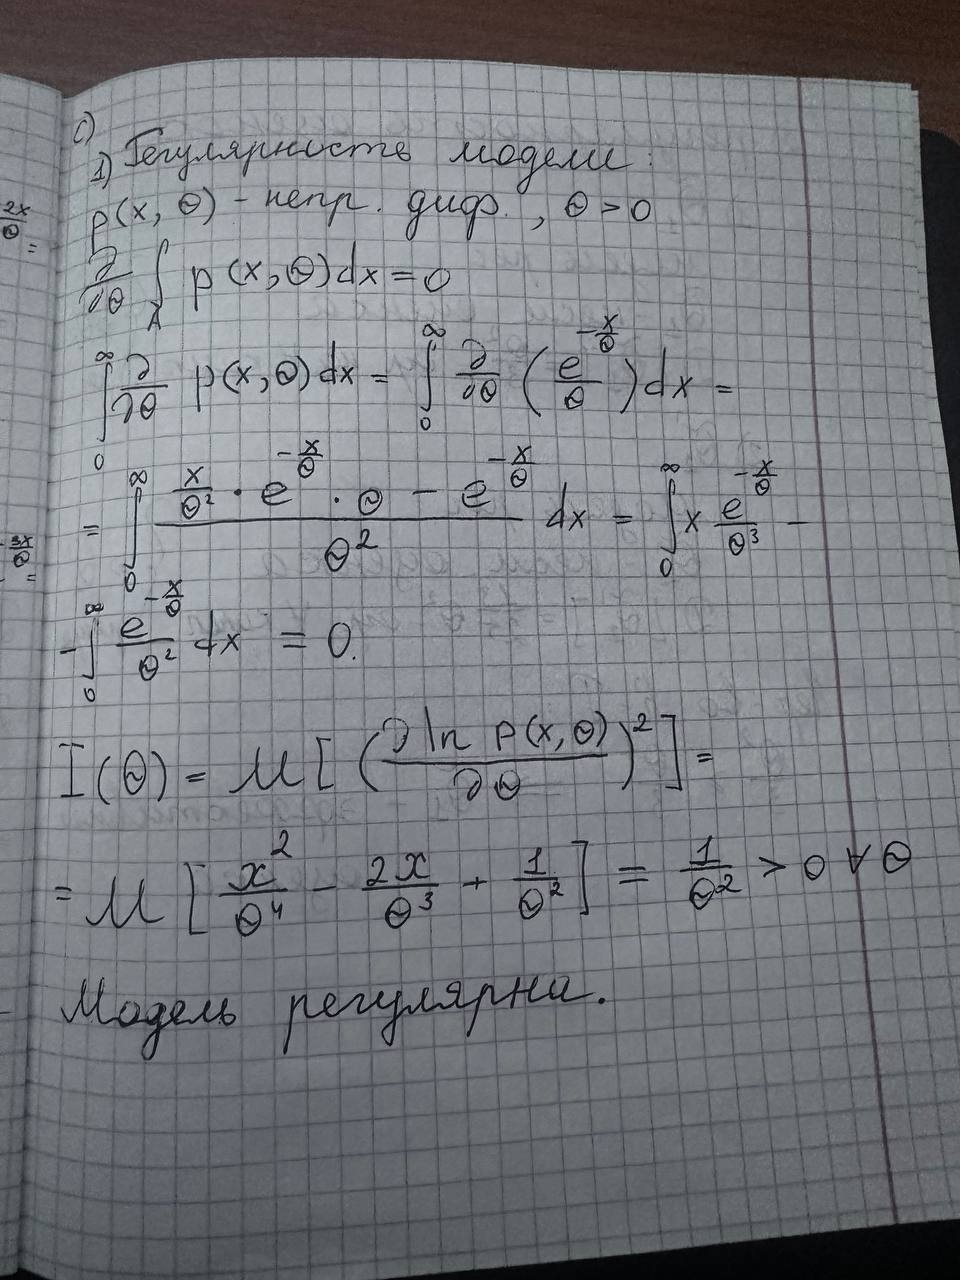 c)
1) Регулярность модели:
p(x, θ) - непр. диф., θ > 0
∂/∂θ ∫_A p(x, θ)dx = 0
∫_0^∞ ∂/∂θ p(x, θ)dx = ∫_0^∞ ∂/∂θ (e^{-x/θ}/θ)dx =
= ∫_0^∞ (x/θ² · e^{-x/θ} · θ - e^{-x/θ})/θ² dx = ∫_0^∞ x e^{-x/θ}/θ³ -
- ∫_0^∞ e^{-x/θ}/θ² dx = 0.
I(θ) = M[(∂ ln p(x, θ)/∂θ)²] =
= M[x²/θ⁴ - 2x/θ³ + 1/θ²] = 1/θ² > 0 ∀ θ
Модель регулярна.
2x/θ =
- 3x/θ =